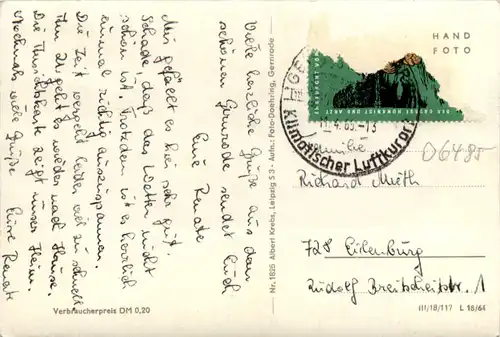 Viele herzliche Grüße aus dem
schönen Gernrode sendet Euch
Eure Renate
Mir gefällt es hier sehr gut.
Schade, daß das Wetter nicht
schön ist. Trotzdem ist es herrlich
einmal richtig auszuspannen.
Die Zeit vergeht leider viel zu schnell
Am 21. geht es wieder nach Hause.
Die Ansichtskarte zeigt unser Heim.
Nochmals viele Grüße Eure Renate
Verbraucherpreis DM 0,20
Nr. 1825 Albert Krebs, Leipzig S 3 - Aufn.: Foto-Doehring, Gernrode
HAND
FOTO
4.65.-13
Klimatischer Luftkurort
Familie
06485
Richard Muth
728 Eilenburg
Rudolf Breitscheidstr. 1
III/18/117 L 18/64